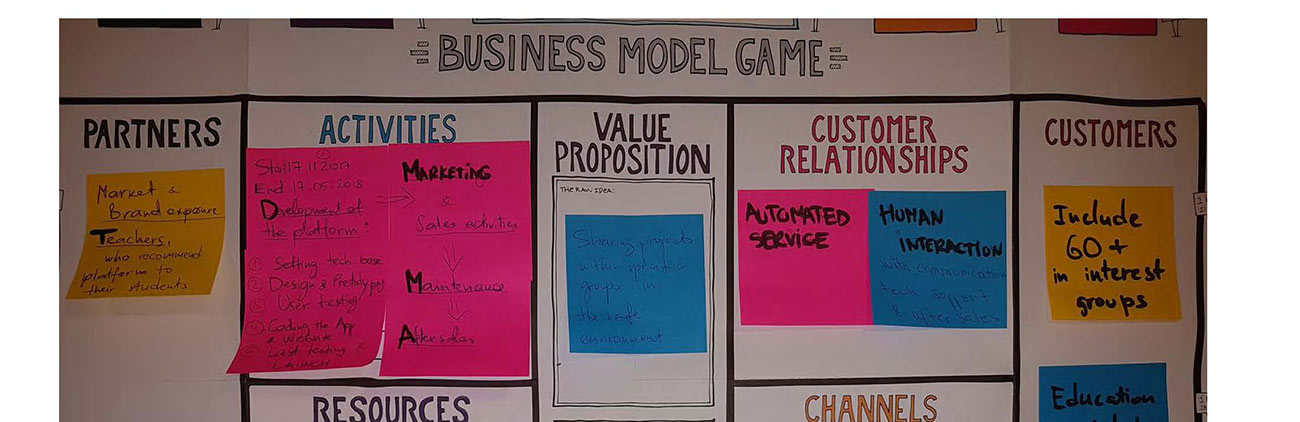 BUSINESS MODEL GAME
PARTNERS
Market &
Brand exposure
Teachers,
who recommend
platform to
their students
ACTIVITIES
①
Start 17 11 2017
End 17.05.2018
Development of
the platform:
① Setting tech base
② Design & Prototypes
③ User testing
④ Coding the App
& Website
Last testing &
LAUNCH
MARKETING
&
Sales activities
Maintenance
After sales
VALUE
PROPOSITION
THE RAW IDEA:
Sharing projects
with specific
groups in
the safe
environment
CUSTOMER
RELATIONSHIPS
AUTOMATED
SERVICE
HUMAN
INTERACTION
with communication
tech support
& after sales
CUSTOMERS
Include
60+
in interest
groups
Education
RESOURCES
CHANNELS